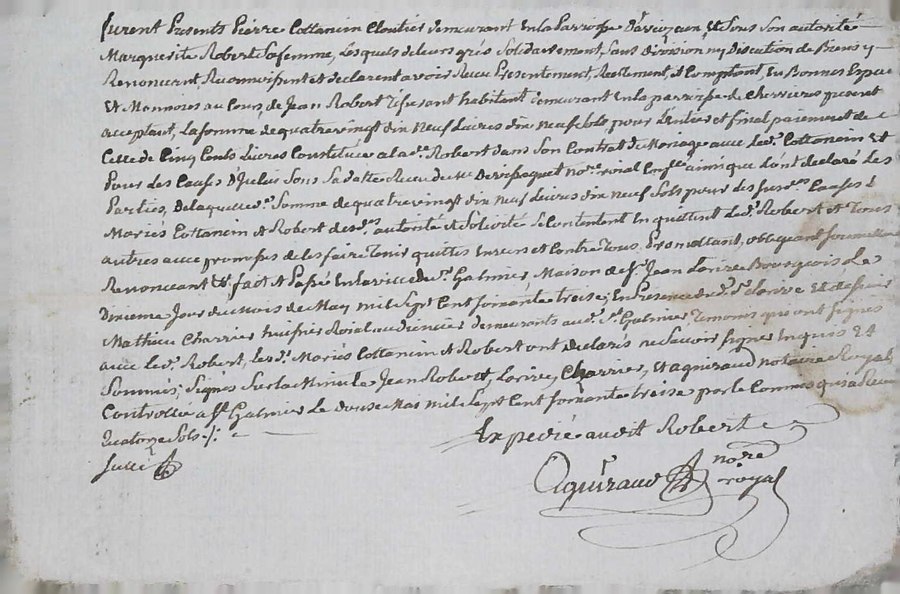 furent Presents Pierre Cottancin Cloutier demeurant En la Parroisse et Sous Son autorité
Marguerite Robert Sa femme, Lesquels de leurs grés Solidairement, Sans division ny Discution de Biens y
Renoncent, Reconnoissent et declarent avoir Receu Presentement, Reellement, et Comptant, En Bonnes Espece
Et Monnoies au Cours, de Jean Robert habitant demeurant En la parroisse de chevrieres present
acceptant, La Somme de quatrevingt dix Neuf Livres dix neuf sols pour L'entier et final paiement de
Celle de Cinq Cents Livres Constituée a lad.e Robert dans Son Contrat de Mariage avec led.t Cottancin Et
Pour des Causes Sous Sa datte Receu de no.re roial ainsi que L'ont declaré Les
Parties, De laquelle d. Somme de quatre vingt dix Neuf Livres dix neuf Sols pour des Causes
Mariés Cottancin et Robert autorité et Se Contentent En quittent led.t Robert et Tous
autres avec promesse de les faire Tenir quittes Envers et Contre Tous, obligeant
Renonceant &c fait et Passé En la ville de S.t Galmier, Maison de S.r Jean Lorire Bourgeois, Le
Dixieme Jour du Mois de May mil Sept Cent Soixante treise; En Presence dud. S.r Lorire Et de
Mathieu Charrier huissier Roial audiencier demeurants aud. S.t Galmier Temoins qui ont signés
avec led.t Robert, Les d.s Mariés Cottancin et Robert ont declarés ne Savoir signer Enquis Et
Sommés; Signés Sur la Minute Jean Robert, Lorire, Charrier, et aguiraud notaire Royal
Controllé a S.t Galmier Le douse May mil Sept Cent Soixante treise par le Commis qui a Receu
Quatorze Sols./.
Expedié audit Robert
Aguiraud no.re
royal